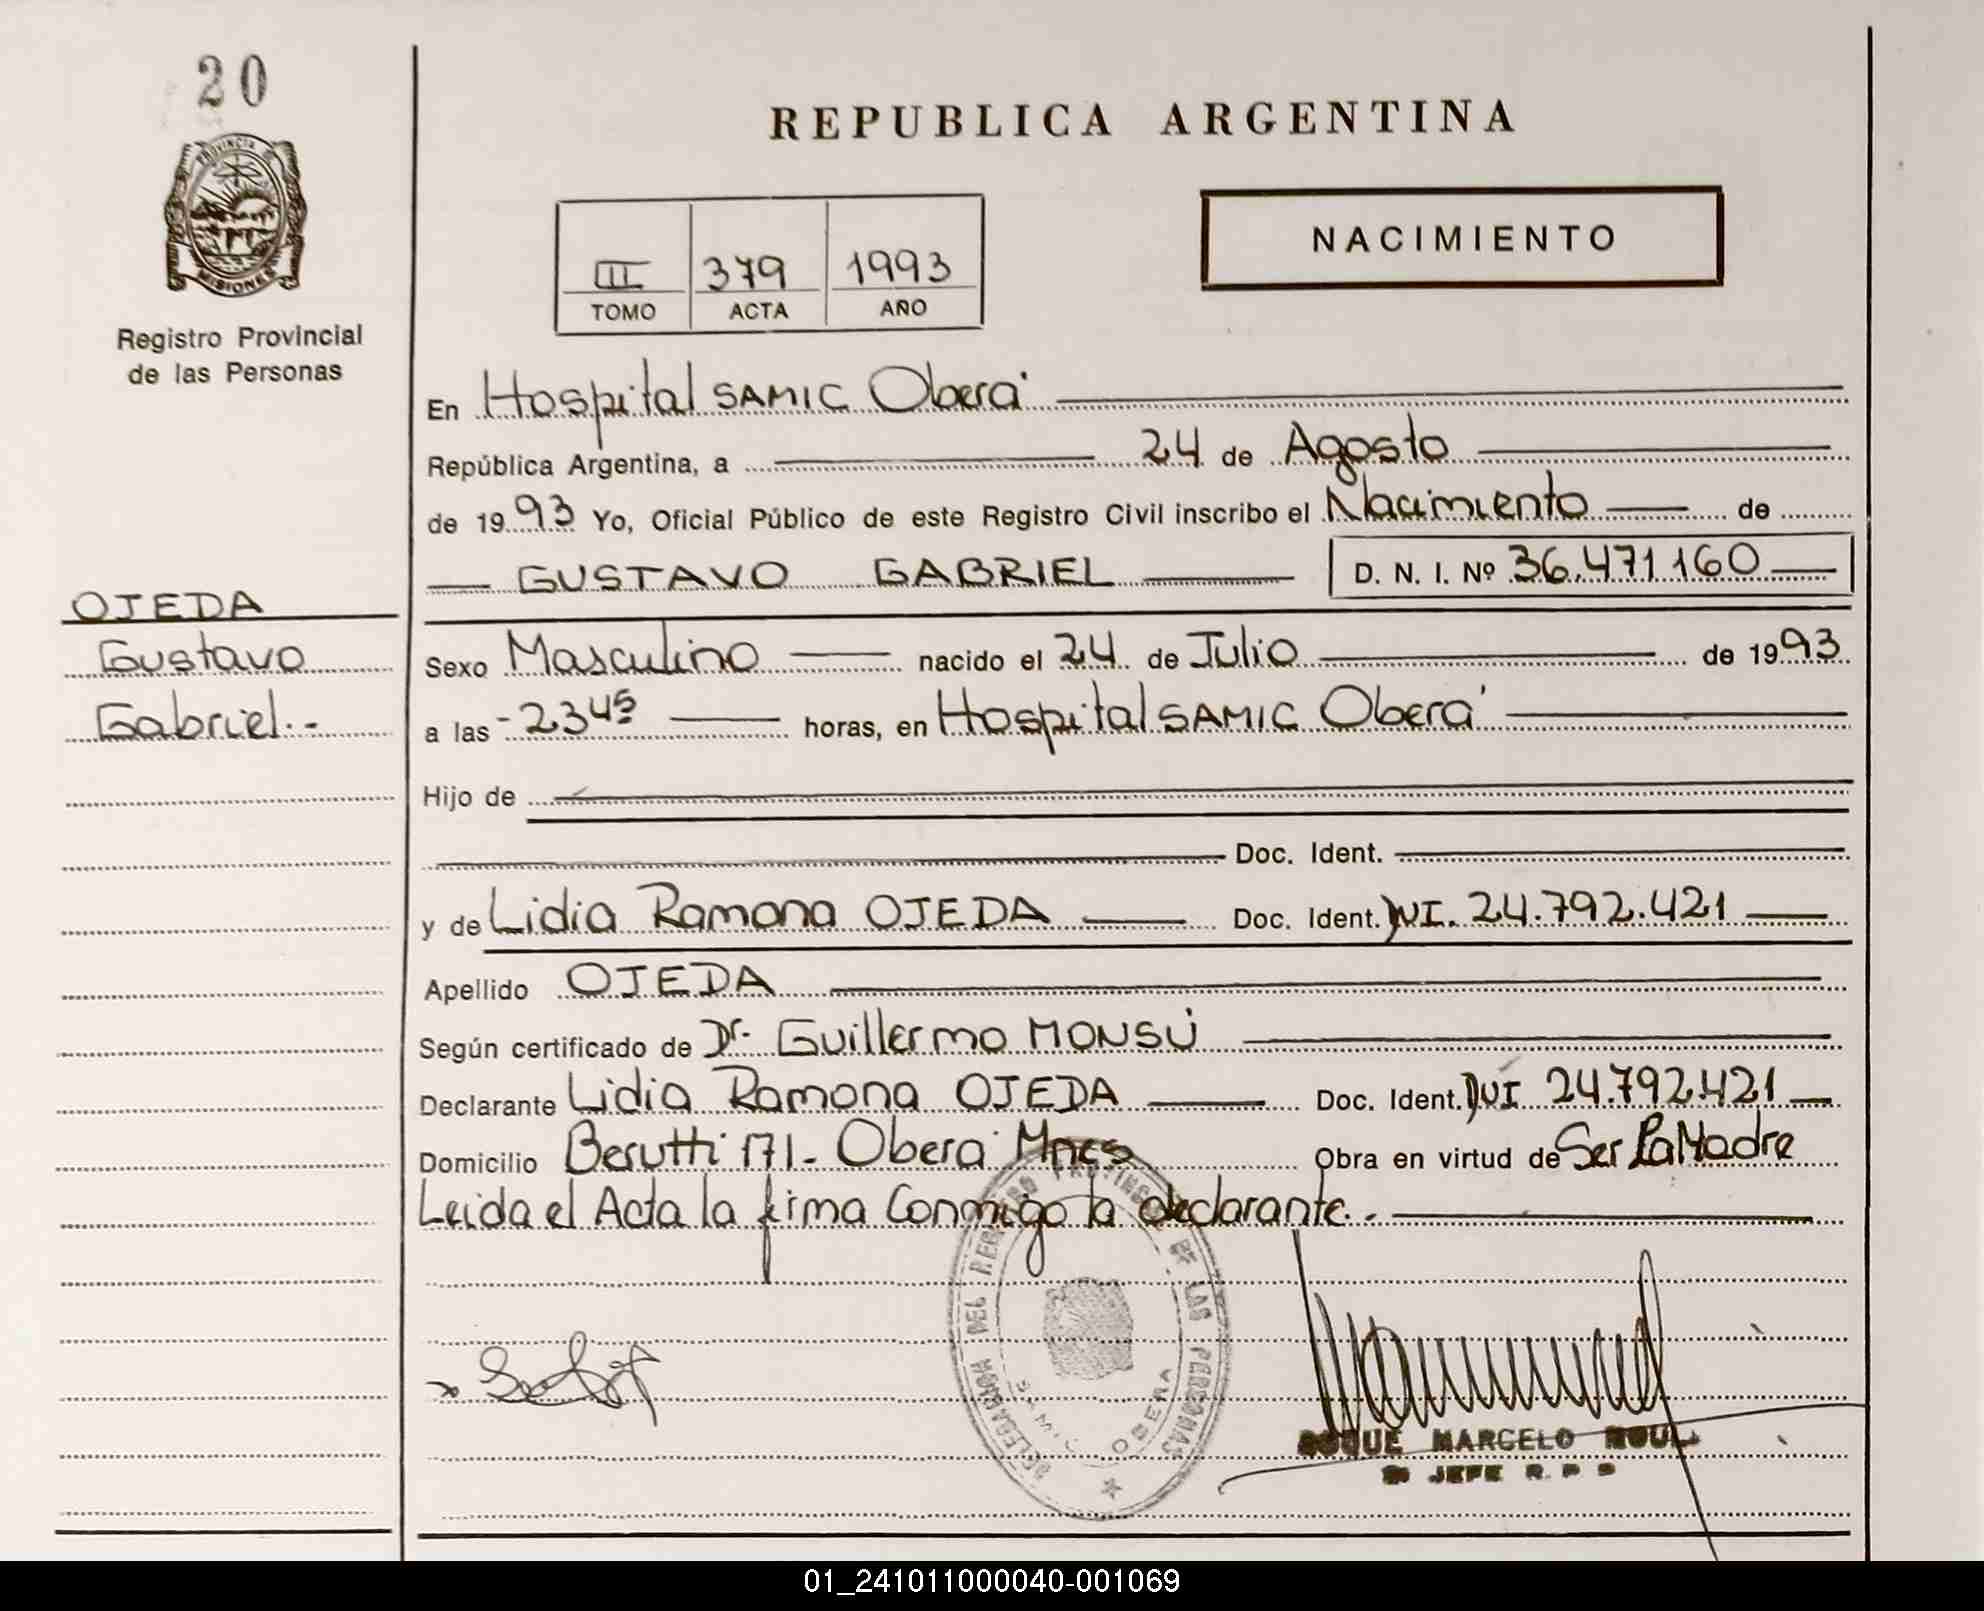 20
PROVINCIA DE
MISIONES
Registro Provincial
de las Personas
REPUBLICA ARGENTINA
NACIMIENTO
III 379 1993
TOMO ACTA AÑO
En Hospital SAMIC Oberá
República Argentina, a 24 de Agosto
de 1993 Yo, Oficial Público de este Registro Civil inscribo el Nacimiento de
GUSTAVO GABRIEL D. N. I. Nº 36.471.160
OJEDA
Gustavo
Gabriel.-
Sexo Masculino nacido el 24 de Julio de 1993
a las -23 45 horas, en Hospital SAMIC Oberá
Hijo de
Doc. Ident.
y de Lidia Ramona OJEDA Doc. Ident. DNI. 24.792.421
Apellido OJEDA
Según certificado de Dr. Guillermo MONSÚ
Declarante Lidia Ramona OJEDA Doc. Ident. DNI 24.792.421
Domicilio Berutti 171- Oberá Mnes Obra en virtud de Ser La Madre
Leida el Acta la firma Conmigo la declarante.-
DELEGACION DEL REGISTRO PROVINCIAL DE LAS PERSONAS
SAMIC OBERA
ROQUE MARCELO
JEFE R. P. P
01_241011000040-001069